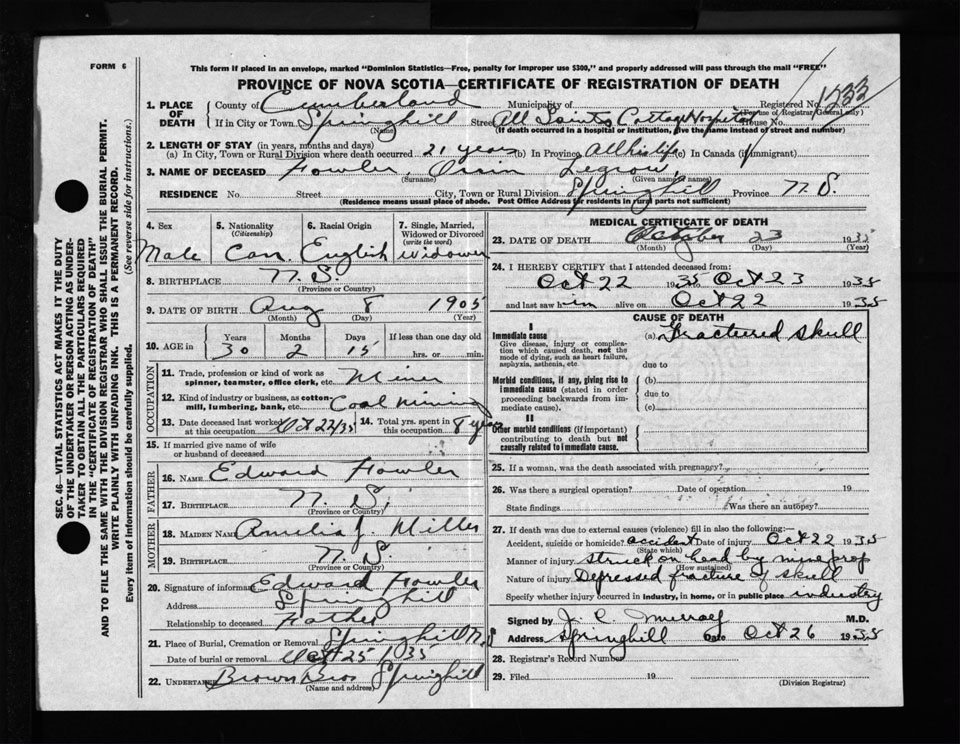 FORM 6
This form if placed in an envelope, marked "Dominion Statistics—Free, penalty for improper use $300," and properly addressed will pass through the mail "FREE"
PROVINCE OF NOVA SCOTIA—CERTIFICATE OF REGISTRATION OF DEATH
1. PLACE OF DEATH
County of Cumberland Municipality of Registered No. 1233
(For use of Registrar General only)
If in City or Town Springhill Street All Saints Cottage Hospital House No.
(Name) (If death occurred in a hospital or institution, give the name instead of street and number)
2. LENGTH OF STAY (in years, months and days)
(a) In City, Town or Rural Division where death occurred 21 years (b) In Province All his life (c) In Canada (if immigrant)
3. NAME OF DECEASED Fowler,
(Surname) (Given name or names)
RESIDENCE No. Street City, Town or Rural Division Springhill Province N.S.
(Residence means usual place of abode. Post Office Address for residents in rural parts not sufficient)
4. Sex 5. Nationality (Citizenship) 6. Racial Origin 7. Single, Married, Widowed or Divorced (write the word)
Male Can. English Widower
8. BIRTHPLACE N.S.
(Province or Country)
9. DATE OF BIRTH Aug 8 1905
(Month) (Day) (Year)
10. AGE in Years Months Days If less than one day old
30 2 15 hrs. or min.
OCCUPATION
11. Trade, profession or kind of work as spinner, teamster, office clerk, etc. Miner
12. Kind of industry or business, as cotton-mill, lumbering, bank, etc. Coal Mining
13. Date deceased last worked at this occupation Oct 22/35 14. Total yrs. spent in this occupation 8 years
15. If married give name of wife or husband of deceased
FATHER
16. NAME Edward Fowler
17. BIRTHPLACE N.S.
(Province or Country)
MOTHER
18. MAIDEN NAME Amelia J. Miller
19. BIRTHPLACE N.S.
(Province or Country)
20. Signature of informant Edward Fowler
Address Springhill
Relationship to deceased Father
21. Place of Burial, Cremation or Removal Springhill N.S
Date of burial or removal Oct 25 1935
22. UNDERTAKER Brown Bros Springhill
(Name and address)
MEDICAL CERTIFICATE OF DEATH
23. DATE OF DEATH October 23 1935
(Month) (Day) (Year)
24. I HEREBY CERTIFY that I attended deceased from:
Oct 22 1935 to Oct 23 1935
and last saw him alive on Oct 22 1935
CAUSE OF DEATH
I
Immediate cause (a) Fractured skull
Give disease, injury or complication which caused death, not the mode of dying, such as heart failure, asphyxia, asthenia, etc.
due to
Morbid conditions, if any, giving rise to immediate cause (stated in order proceeding backwards from immediate cause).
(b)
due to
(c)
II
Other morbid conditions (if important) contributing to death but not causally related to immediate cause.
25. If a woman, was the death associated with pregnancy?
26. Was there a surgical operation? Date of operation 19
State findings Was there an autopsy?
27. If death was due to external causes (violence) fill in also the following:—
Accident, suicide or homicide? accident Date of injury Oct 22 1935
(State which)
Manner of injury struck on head by mine prop
(How sustained)
Nature of injury Depressed fracture of skull
Specify whether injury occurred in industry, in home, or in public place industry
Signed by M.D.
Address Springhill Date Oct 26 1935
28. Registrar's Record Number
29. Filed 19
(Division Registrar)
SEC. 46—VITAL STATISTICS ACT MAKES IT THE DUTY
OF THE UNDERTAKER OR PERSON ACTING AS UNDERTAKER
TO OBTAIN ALL THE PARTICULARS REQUIRED
IN THE "CERTIFICATE OF REGISTRATION OF DEATH"
AND TO FILE THE SAME WITH THE DIVISION REGISTRAR WHO SHALL ISSUE THE BURIAL PERMIT.
WRITE PLAINLY WITH UNFADING INK. THIS IS A PERMANENT RECORD.
Every item of information should be carefully supplied. (See reverse side for instructions.)